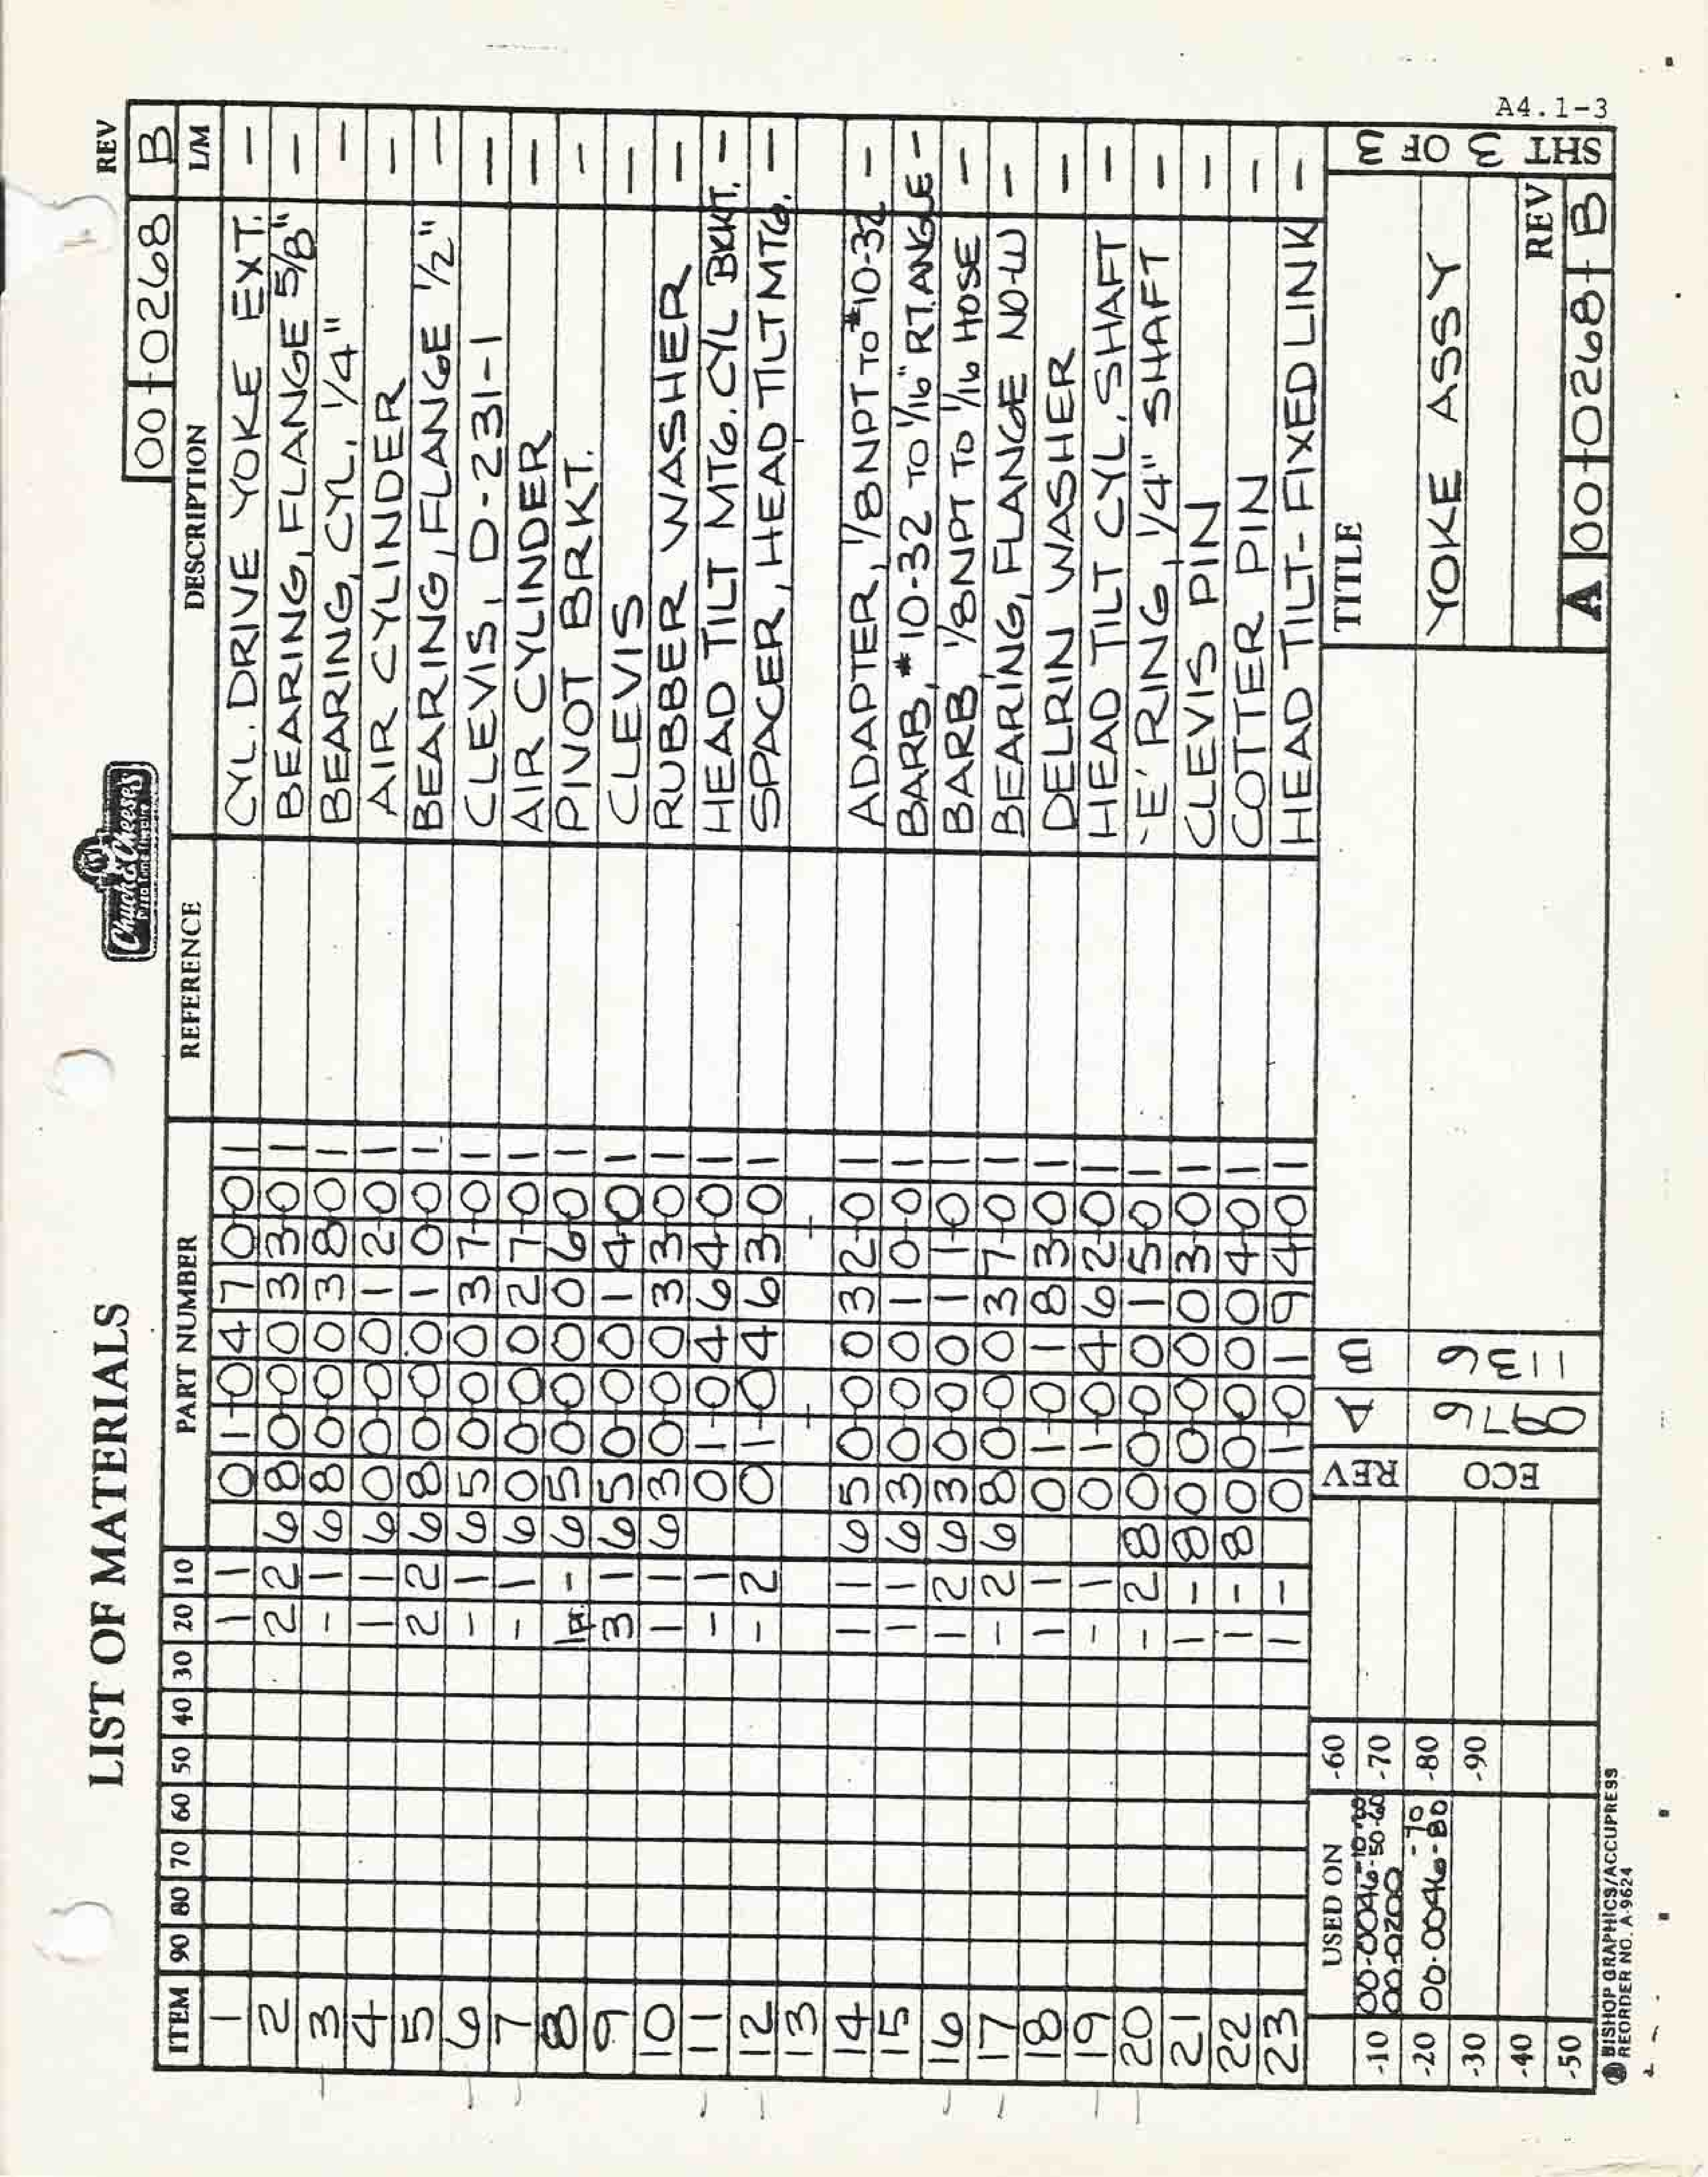 LIST OF MATERIALS
Chuck E. Cheese's
Pizza Time Theatre
REV
00-0268 B
ITEM 90 80 70 60 50 40 30 20 10 PART NUMBER REFERENCE DESCRIPTION L/M
1 1 1 01-0470-01 CYL. DRIVE YOKE EXT. -
2 2 2 680-0033-01 BEARING, FLANGE 5/8" -
3 - 1 680-0038-01 BEARING, CYL, 1/4" -
4 1 1 600-0012-01 AIR CYLINDER -
5 2 2 680-0010-01 BEARING, FLANGE 1/2" -
6 - 1 650-0037-01 CLEVIS, D-231-1 -
7 - 1 600-0027-01 AIR CYLINDER -
8 1pr. - 650-0006-01 PIVOT BRKT. -
9 3 1 650-0014-01 CLEVIS -
10 1 1 630-0033-01 RUBBER WASHER -
11 - 1 01-0464-01 HEAD TILT MTG. CYL BRKT. -
12 - 2 01-0463-01 SPACER, HEAD TILT MTG. -
13
14 1 1 650-0032-01 ADAPTER, 1/8 NPT TO #10-32 -
15 1 1 630-0010-01 BARB, #10-32 TO 1/16" RT. ANGLE -
16 1 2 630-0011-01 BARB, 1/8 NPT TO 1/16 HOSE -
17 - 2 680-0037-01 BEARING, FLANGE NO-W -
18 1 1 01-0183-01 DELRIN WASHER -
19 - 1 01-0462-01 HEAD TILT CYL, SHAFT -
20 - 2 800-0015-01 'E' RING, 1/4" SHAFT -
21 1 - 800-0003-01 CLEVIS PIN -
22 1 - 800-0004-01 COTTER PIN -
23 1 - 01-0194-01 HEAD TILT-FIXED LINK -
USED ON
-10 00-0046-10
-50-60
00-0200
-20 00-0046-80
-70
-30
-40
-50
-60
-70
-80
-90
REV A B
ECO 0976 1136
TITLE
YOKE ASSY
SHT 3 OF 3
REV
A 00-0268- B
A4.1-3
BISHOP GRAPHICS/ACCUPRESS
REORDER NO. A-9624